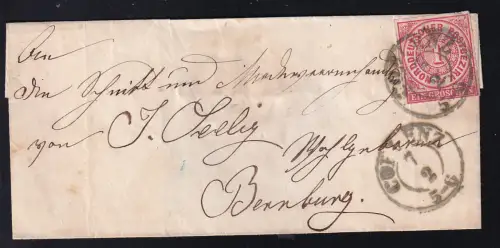 An
die Schnitt und Modewaarenhandlung
von J. Seelig
Wohlgeboren
Bernburg.
NORDDEUTSCHER POSTBEZIRK
1
EIN GROSCHEN
7
2
5-6